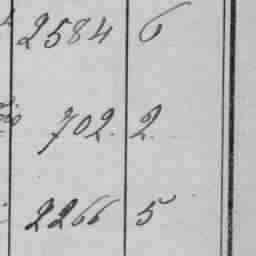 2584 6
702. 2.
2266 5